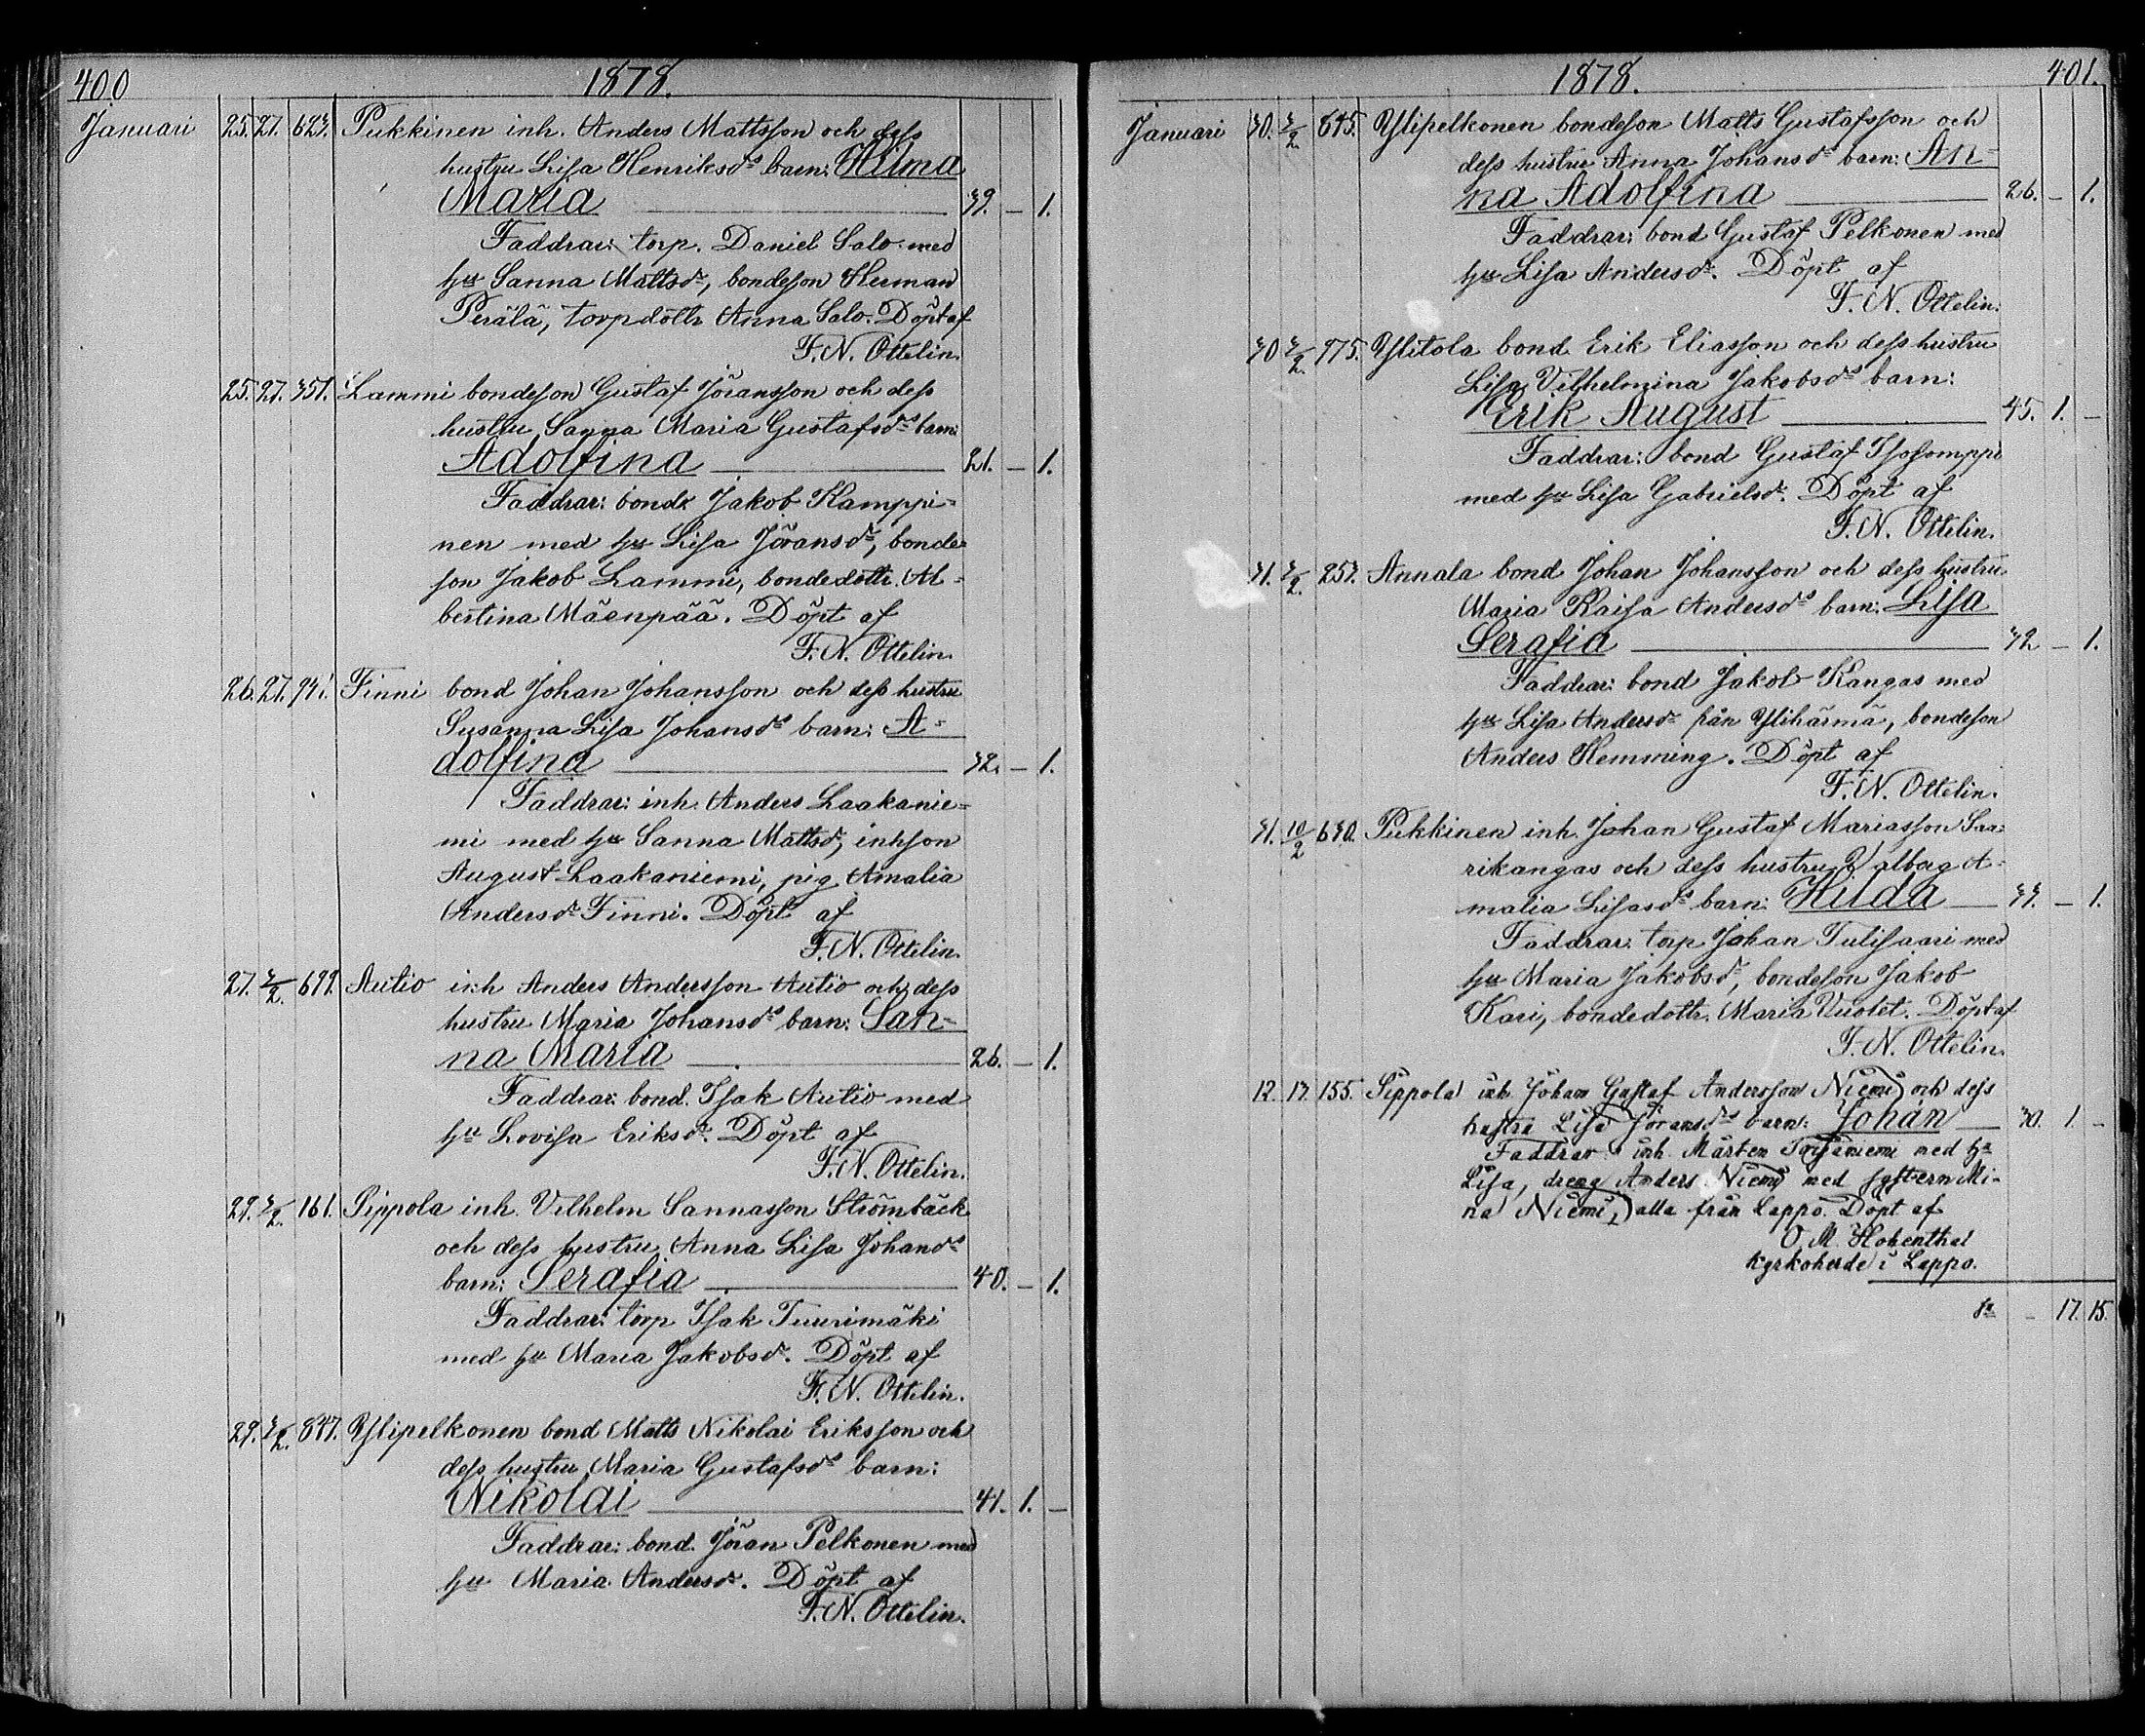 400
1878.
Januari 25. 27. 623. Pukkinen inh. Anders Mattsson och dess
hustru Lisa Henriksdr barn: Hilma
Maria 39. – 1.
Faddrar: torp. Daniel Salo med
hu Sanna Mattsdr, bondeson Herman
Perälä, torpdottr Anna Salo. Döpt af
F. N. Ottelin.
25. 27. 351. Lammi bondeson Gustaf Jöransson och dess
hustru Sanna Maria Gustafsdr barn:
Adolfina 21. – 1.
Faddrar: bond Jakob Kamppi-
nen med hu Lisa Jöransdr, bonde-
son Jakob Lammi, bondedottr. Al-
bertina Mäenpää. Döpt af
F. N. Ottelin.
26. 27. 941. Finni bond Johan Johansson och dess hustru
Susanna Lisa Johansdr barn: A-
dolfina 32. – 1.
Faddrar: inh. Anders Laakanie-
mi med hu Sanna Mattsdr, inhson
August Laakaniemi, pig Amalia
Andersdr Finni. Döpt af
F. N. Ottelin.
27. 3/2. 699. Autio inh Anders Andersson Autio och dess
hustru Maria Johansdr barn: San-
na Maria 26. – 1.
Faddrar: bond. Isak Autio med
hu Lovisa Eriksdr. Döpt af
F. N. Ottelin.
29. 3/2. 161. Pippola inh. Vilhelm Sannasson Strömbäck
och dess hustru Anna Lisa Johansdr
barn: Serafia 40. – 1.
Faddrar: torp Isak Tuurimäki
med hu Maria Jakobsdr. Döpt af
F. N. Ottelin.
29. 3/2. 847. Ylipelkonen bond Matts Nikolai Eriksson och
dess hustru Maria Gustafsdr barn:
Nikolai 41. 1. –
Faddrar: bond. Jöran Pelkonen med
hu Maria Andersdr. Döpt af
F. N. Ottelin.
1878.
401.
Januari 30. 3/2 845. Ylipelkonen bondeson Matts Gustafsson och
dess hustru Anna Johansdr barn: An-
na Adolfina 26. – 1.
Faddrar: bond Gustaf Pelkonen med
hu Lisa Andersdr. Döpt af
F. N. Ottelin.
30 3/2. 975. Ylitola bond Erik Eliasson och dess hustru
Lisa Vilhelmina Jakobsdr barn:
Erik August 45. 1. –
Faddrar: bond Gustaf Isosomppi
med hu Lisa Gabrielsdr. Döpt af
F. N. Ottelin.
31. 3/2. 253. Annala bond Johan Johansson och dess hustru
Maria Kaisa Andersdr barn: Lisa
Serafia 32 – 1.
Faddrar: bond Jakob Kangas med
hu Lisa Andersdr från Ylihärmä, bondeson
Anders Hemming. Döpt af
F. N. Ottelin.
31. 10/2 630. Pukkinen inh. Johan Gustaf Mariasson Saa-
rikangas och dess hustru Valborg A-
malia Lisasdr barn: Hilda 33. – 1.
Faddrar: torp Johan Tulisaari med
hu Maria Jakobsdr, bondeson Jakob
Kari, bondedottr. Maria Vuolet. Döpt af
F. N. Ottelin.
12. 13. 155. Pippola inh. Johan Gustaf Andersson Niemi och dess
hustru Lisa Jöransdr barn: Johan 30. 1. –
Faddrar: inh. Mårten med hu
Lisa, dreng Anders Niemi med systern Mi-
na Niemi, alla från Lappo. Döpt af
O. M. Hohenthal
kyrkoherde i Lappo.
Sa – 17. 15.